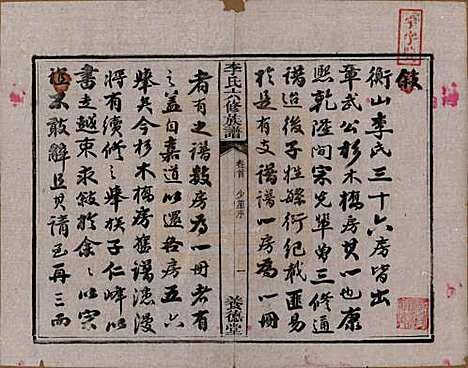 敘
衡山李氏三十六房皆出
韋武公杉木橋房其一也康
熙乾隆間宋先輩曾三修通
譜迨後子姓緜衍紀載匪易
於是有支譜譜一房為一冊
者有之譜數房為一冊者有
之蓋自嘉道以還各房五六
舉矣今杉木橋房舊譜漶漫
將有續修之舉族子仁峰以
書走越東求敘於余余以宗
誼不敢辭且其請至再三而
李氏六修族譜
卷首
序
一
養德堂